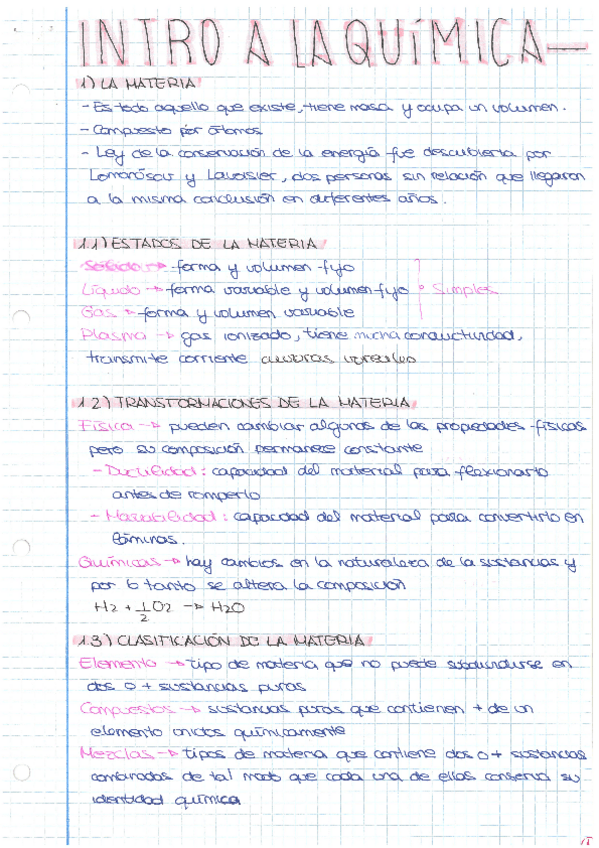 INTRO A LA QUÍMICA
1) LA MATERIA
- Es todo aquello que existe, tiene masa y ocupa un volumen.
- Compuesto por átomos
- Ley de la conservación de la energía fue descubierta por
y Lavoisier, dos personas sin relación que llegaron
a la misma conclusión en diferentes años.
1.1) ESTADOS DE LA MATERIA
Sólido → forma y volumen fijo
Líquido → forma variable y volumen fijo Simples
Gas → forma y volumen variable
Plasma → gas ionizado, tiene mucha conductividad,
transmite corriente
1.2) TRANSFORMACIONES DE LA MATERIA
Física → pueden cambiar algunas de las propiedades físicas
pero su composición permanece constante
- Ductilidad: capacidad del material para flexionarlo
antes de romperlo
- Maleabilidad: capacidad del material para convertirlo en
láminas.
Químicas → hay cambios en la naturaleza de la sustancias y
por lo tanto se altera la composición
H2 + 1/2 O2 → H2O
1.3) CLASIFICACIÓN DE LA MATERIA
Elemento → tipo de materia que no puede subdividirse en
dos o + sustancias puras
Compuestos → sustancias puras que contienen + de un
elemento unidos químicamente
Mezclas → tipos de materia que contiene dos o + sustancias
combinadas de tal modo que cada una de ellas conserva su
identidad química